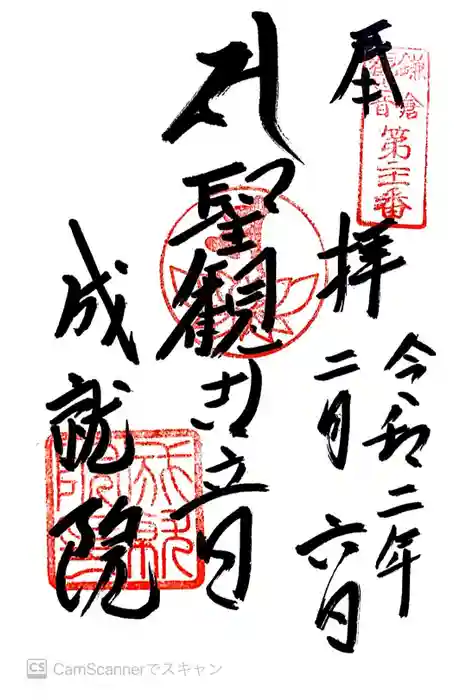 奉拝
鎌倉
観音
第二十一番
令和二年
二月六日
聖観世音
成就院
成就
院印
CS CamScannerでスキャン